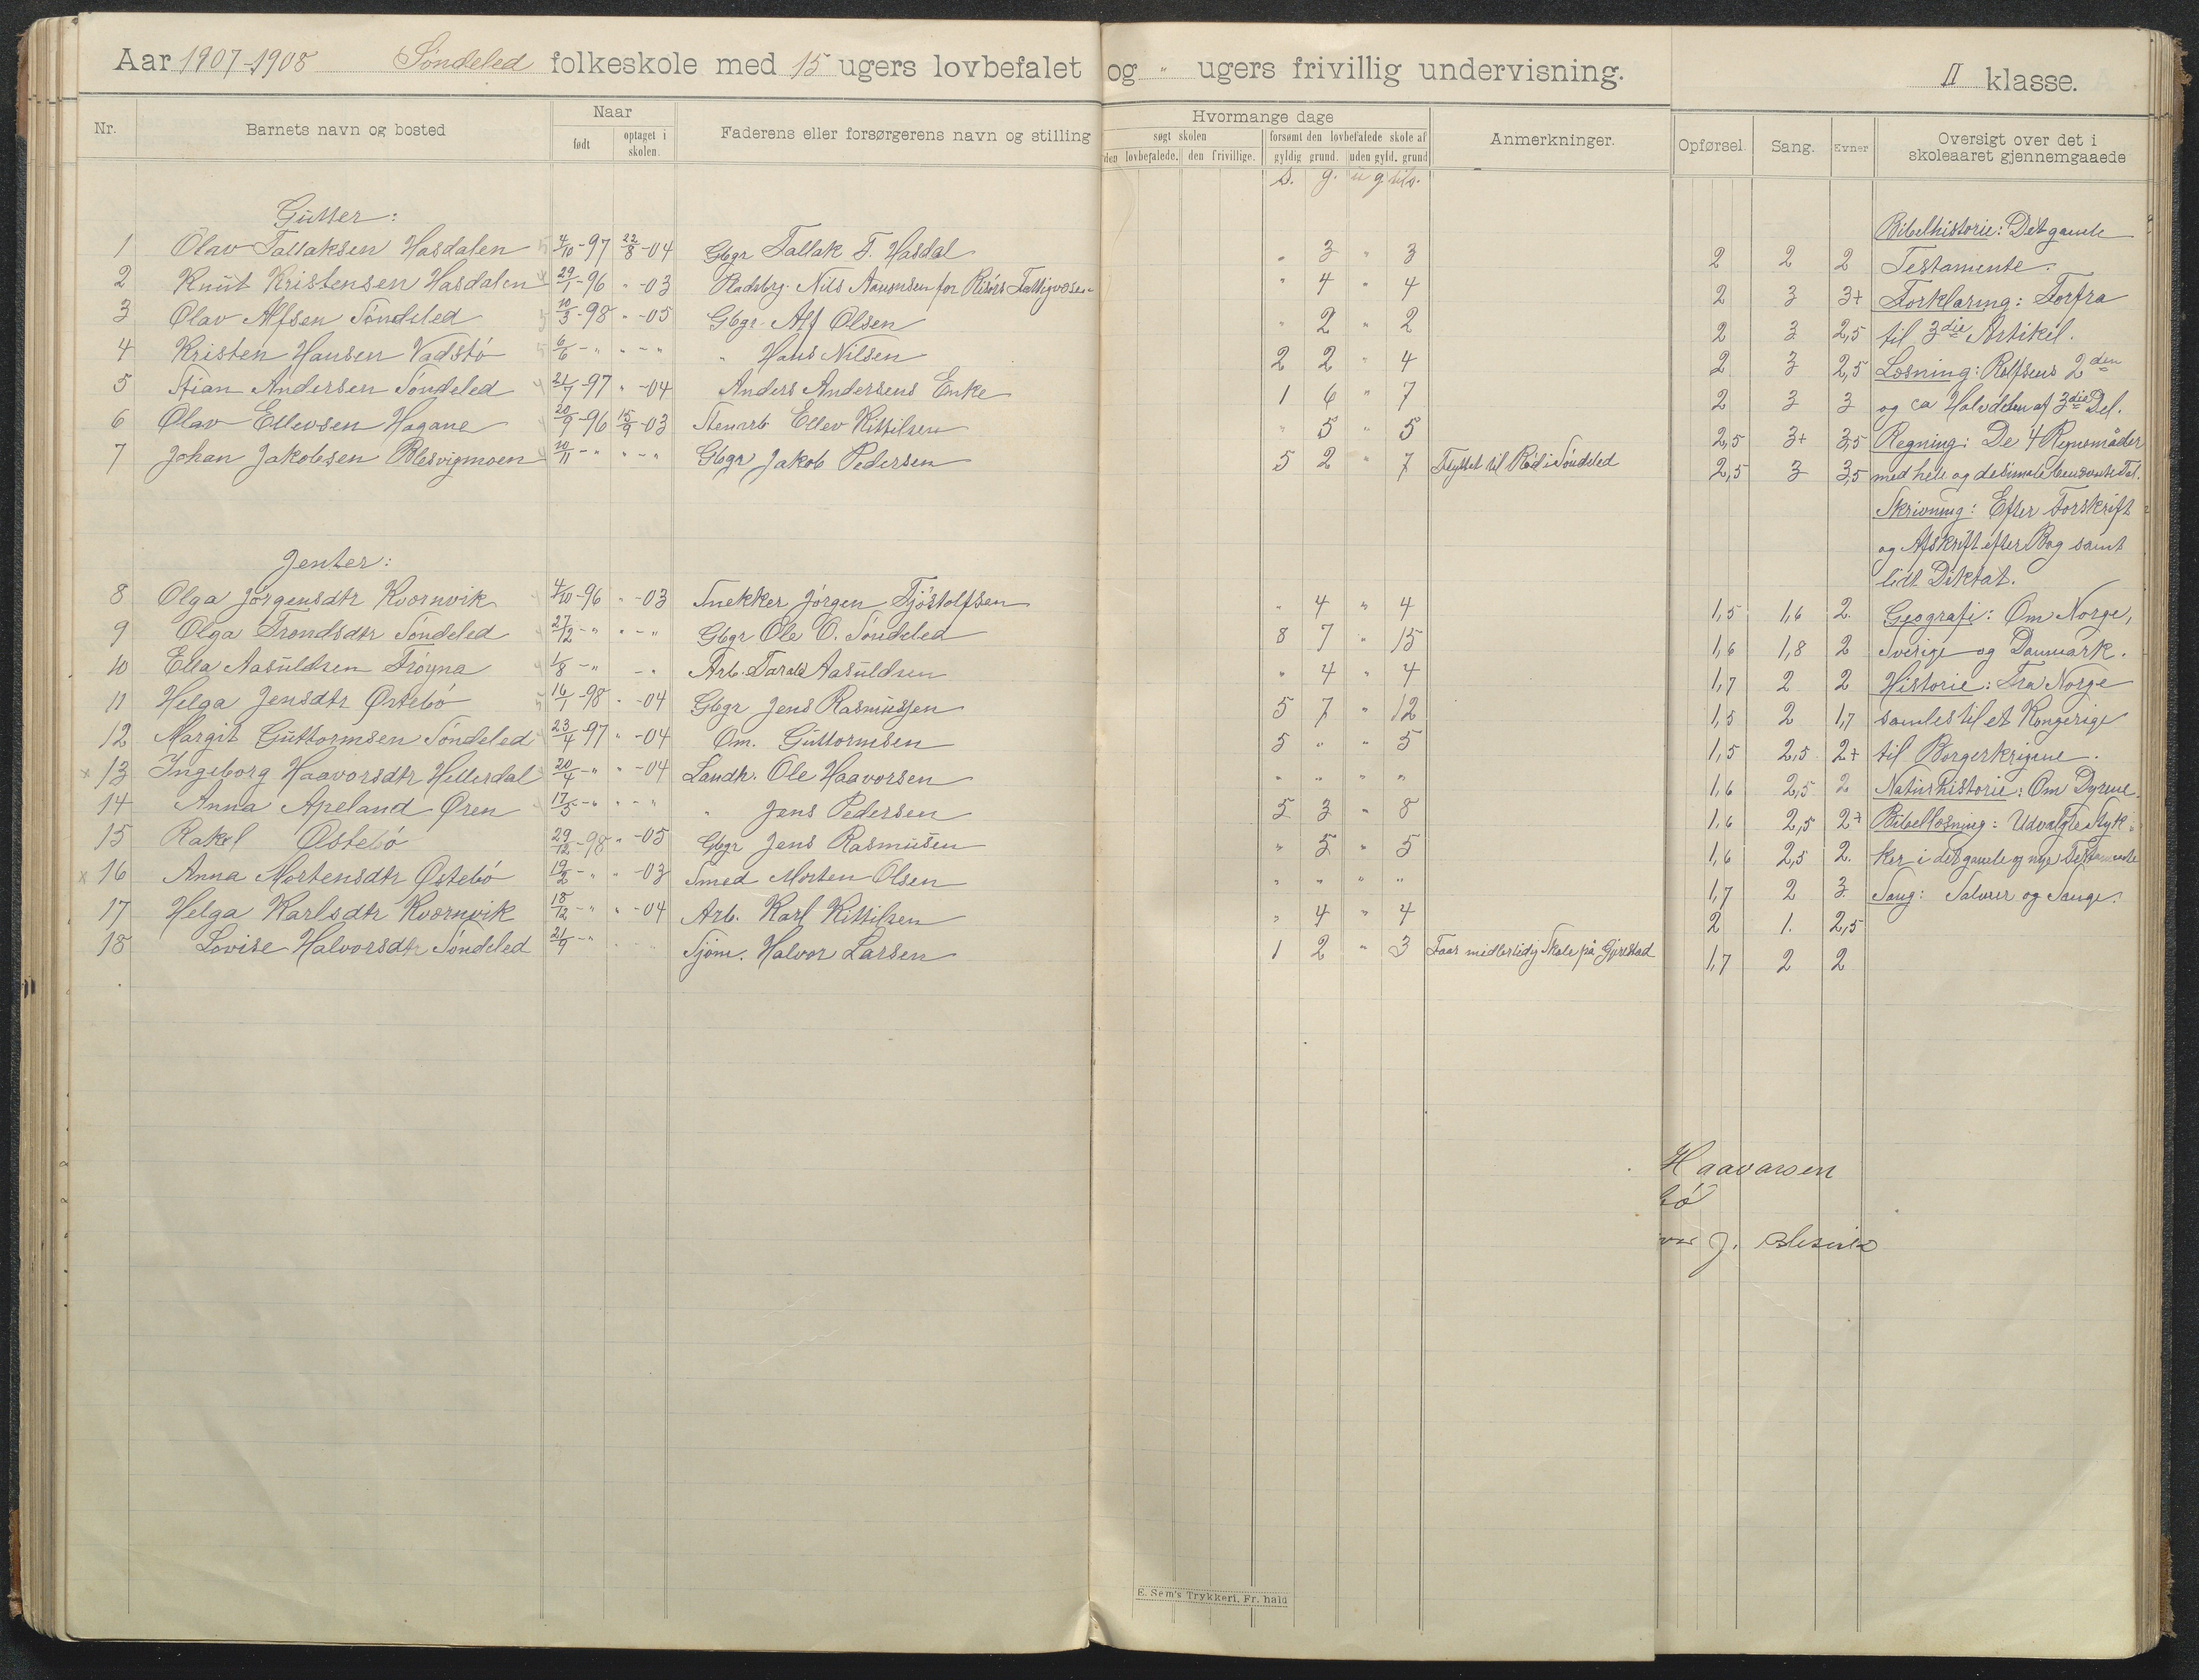 Aar 1907-1908 Søndeled folkeskole med 15 ugers lovbefalet og " ugers frivillig undervisning. II klasse.
Nr. Barnets navn og bosted Naar født optaget i skolen. Faderens eller forsørgerens navn og stilling Hvormange dage søgt skolen den lovbefalede. den frivillige. forsømt den lovbefalede skole af gyldig grund. uden gyld. grund Anmerkninger. Opførsel. Sang. Evner Oversigt over det i skoleaaret gjennemgaaede
s. g. u g tils.
Gutter: Bibelhistorie: Det gamle
1 Olav Tallaksen Hasdalen 4/10-97 22/8-04 Gbgr Tallak T. Hasdal " 3 " 3 2 2 2 Testamente.
2 Knut Kristensen Hasdalen 29/1-96 "-03 Pladsbrg. Nils Aanonsen for Risörs Fattigvæsen " 4 " 4 2 3 3+ Forklaring: Forfra
3 Olav Alfsen Söndeled 10/3-98 "-05 Gbgr. Alf Olsen " 2 " 2 2 3 2,5 til 3die Artikel.
4 Kristen Hansen Vadstö 6/6-" "-" " Hans Nilsen 2 2 " 4 2 3 2,5 Læsning: Rolfsens 2den
5 Stian Andersen Söndeled 21/7-97 "-04 Anders Andersens Enke 1 6 " 7 2 3 3 og ca Halvdelen af 3die Del.
6 Olav Ellevsen Hagane 20/9-96 15/9-03 Stenarb Ellev Kittilsen " 5 " 5 2,5 3+ 3,5 Regning: De 4 Regnemåder
7 Johan Jakobsen Blesvigmoen 10/11-" "-" Gbgr Jakob Pedersen 5 2 " 7 Flyttet til Röd i Söndeled 2,5 3 3,5 med hele og desimale benævnte Tal.
Skrivning: Efter Forskrift
og Afskrift efter Bog samt
Jenter: lidt Diktat.
8 Olga Jörgensdtr Kvornvik 4/10-96 "-03 Snekker Jörgen Tjöstolfsen " 4 " 4 1,5 1,6 2. Geografi: Om Norge,
9 Olga Trondsdtr Söndeled 27/12-" "-" Gbgr Ole O. Söndeled 8 7 " 15 1,6 1,8 2 Sverige og Danmark.
10 Ella Aasuldsen Fröyna 1/8-" -" Arb. Tarald Aasuldsen " 4 " 4 1,7 2 2 Historie: Fra Norge
11 Helga Jensdtr Östebö 16/1-98 "-04 Gbgr Jens Rasmussen 5 7 " 12 1,5 2 1,7 samles til et Kongerige
12 Margit Guttormsen Söndeled 23/4-97 "-04 Om. Guttormsen 5 " " 5 1,5 2,5 2+ til Borgerkrigene.
x 13 Ingeborg Haavorsdtr Hellersdal 20/4-" "-04 Landh. Ole Haavorsen " " " " 1,6 2,5 2 Naturhistorie: Om Dyrene.
14 Anna Apeland Øren 17/5-" "-" " Jens Pedersen 5 3 " 8 1,6 2,5 2+ Bibellæsning: Udvalgte Styk-
15 Rakel Østebö 29/12-98 "-05 Gbgr Jens Rasmusen " 5 " 5 1,6 2,5 2. ker i det gamle og nye Testamente
x 16 Anna Mortensdtr Østebö 19/2-" "-03 Smed Morten Olsen " " " " 1,7 2 3 Sang: Salmer og Sange.
17 Helga Karlsdtr Kvornvik 18/12-" "-04 Arb. Karl Kittilsen " 4 " 4 2 1. 2,5
18 Lovise Halvorsdtr Söndeled 21/9-" Sjöm. Halvor Larsen 1 2 " 3 Faar midlertidig Skole på Gjerstad 1,7 2 2
Haavorsen
bö
J.
E. Sem's Trykkeri, Fr. hald